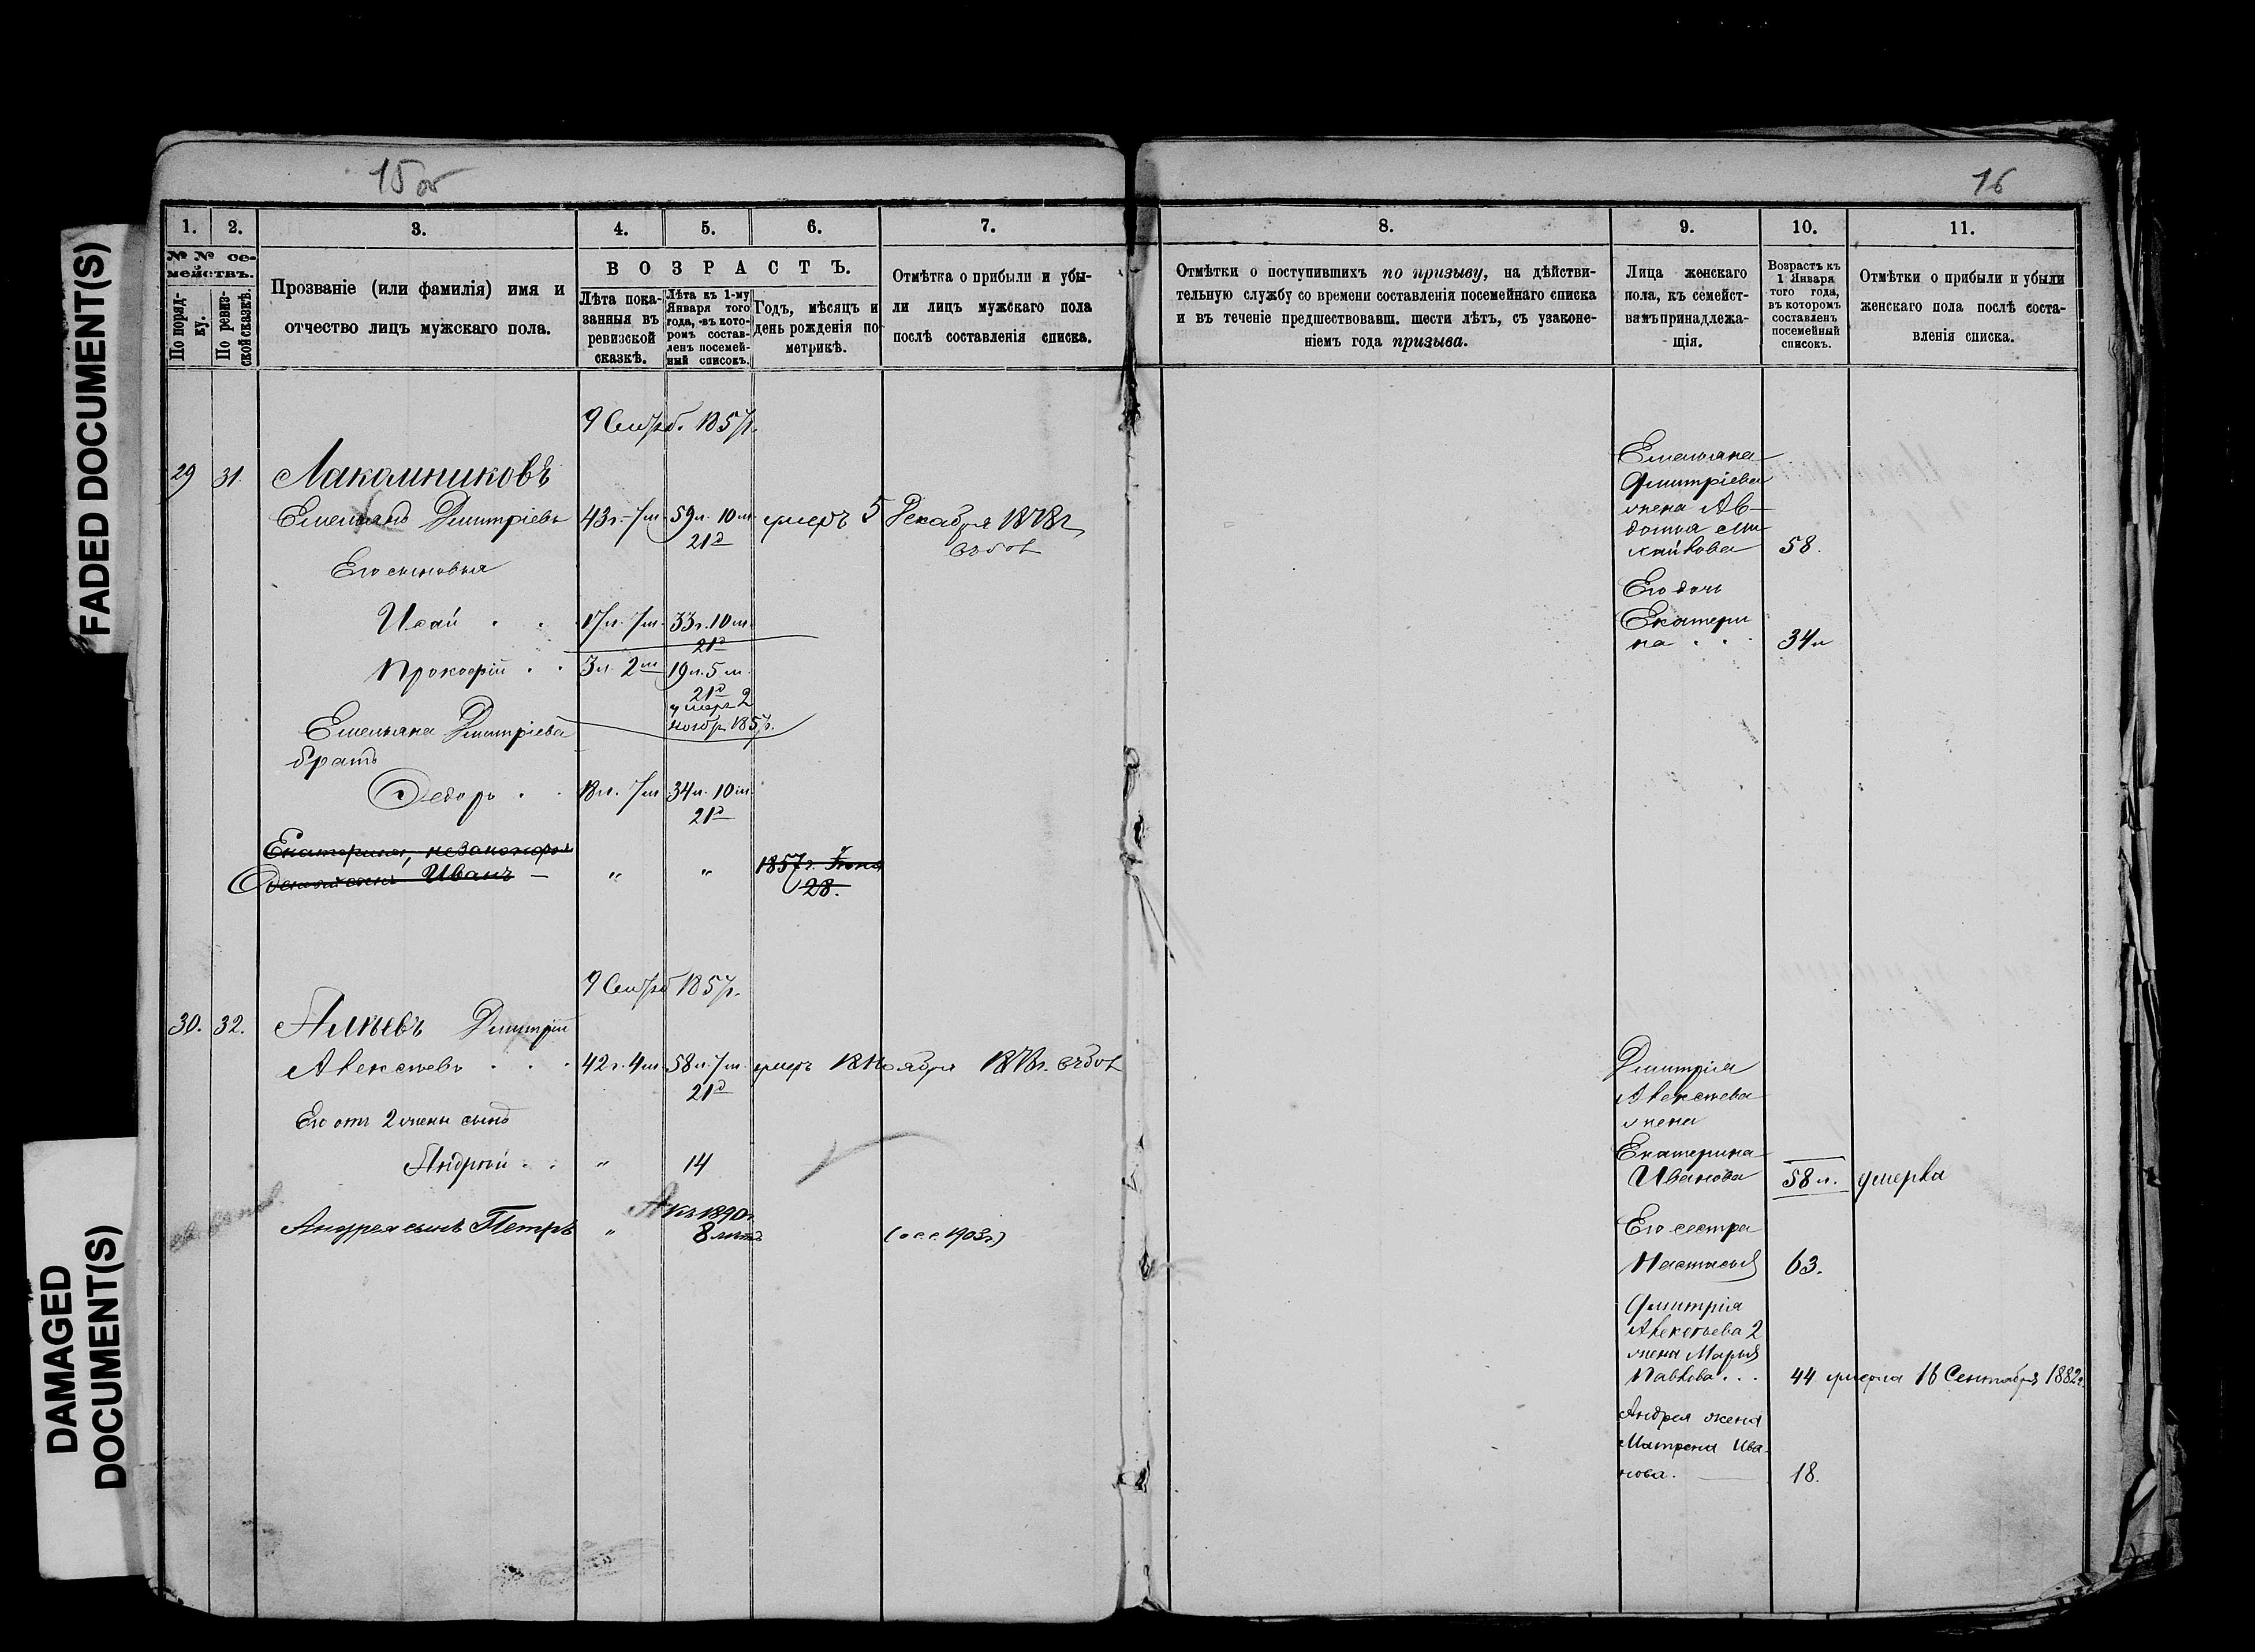 FADED DOCUMENT(S)
DAMAGED
DOCUMENT(S)
15 об
1.
2.
3.
4.
5.
6.
7.
№ № се-
мействъ.
По поряд-
ку.
По ревиз-
ской сказкѣ.
Прозваніе (или фамилія) имя и
отчество лицъ мужскаго пола.
ВОЗРАСТЪ.
Лѣта пока-
занныя въ
ревизской
сказкѣ.
Лѣта къ 1-му
Января того
года, въ кото-
ромъ состав-
ленъ посемей-
ный списокъ.
Годъ, мѣсяцъ и
день рожденія по
метрикѣ.
Отмѣтка о прибыли и убы-
ли лицъ мужскаго пола
послѣ составленія списка.
9 1857г.
29 31. Лакомниковъ
Емельянъ Дмитріевъ 43г. 7м. 59л. 10м. умеръ 5 Декабря 1878г.
21д
Его сыновья
Исай . . 17л. 7м. 33г. 10м.
21д
Прокофій . . 3л. 2м 19л. 5м.
21д
умеръ 2
ноябр. 1857г.
Емельяна Дмитріева
братъ
Федоръ . . 18л. 7м 34л. 10м.
21д
Екатерины, незаконорож
денный сынъ Иванъ — " " 1857г. Іюня
28.
9 1857г.
30. 32. Дмитрій
Алексѣевъ . . . 42г. 4м 58л. 7м. умеръ 18 Ноября 1878г.
21д
Его отъ 2 жены сынъ
Андрей . . " 14
Къ 1890г.
Андрея сынъ Петръ " 8 лѣтъ (о с.с. 1903г.)
16
8.
9.
10.
11.
Отмѣтки о поступившихъ по призыву, на дѣйстви-
тельную службу со времени составленія посемейнаго списка
и въ теченіе предшествовавш. шести лѣтъ, съ узаконе-
ніемъ года призыва.
Лица женскаго
пола, къ семейст-
вамъ принадлежа-
щія.
Возрастъ къ
1 Января
того года,
въ которомъ
составленъ
посемейный
списокъ.
Отмѣтки о прибыли и убыли
женскаго пола послѣ соста-
вленія списка.
Емельяна
Дмитріева
жена Ав-
дотья Ми-
хайлова 58.
Его дочь
Екатери
на . . 34л
Дмитрія
Алексѣева
жена
Екатерина
Иванова 58л. умерла
Его сестра
Настасья 63.
Дмитрія
Алексѣева 2
жена Марья
Павлова . . . 44 умерла 16 Сентября 1882г.
Андрея жена
Матрена Ива-
нова. 18.